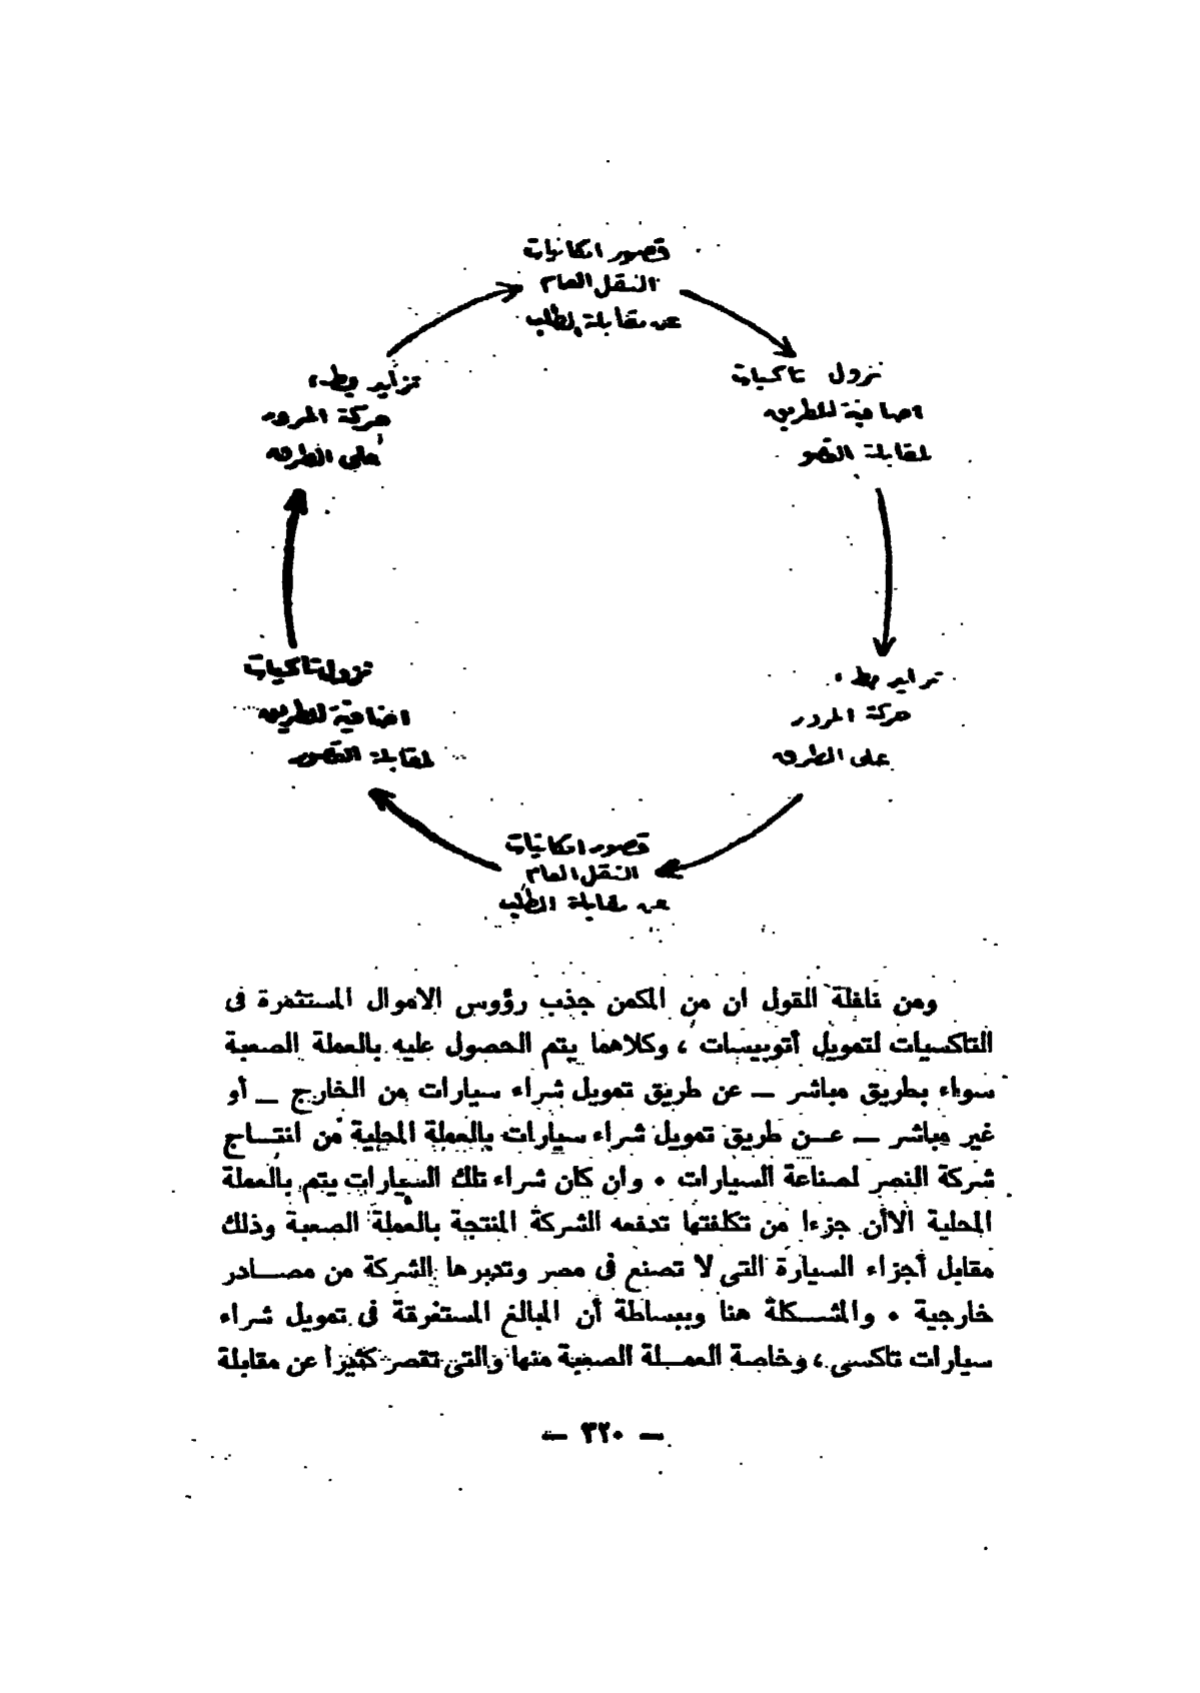 قصور امكانيات
النقل العام
عن مقابلة الطلب
نزول تاكسيات
اضافية للطريق
لمقابلة القصور
تزايد بطء
حركة المرور
على الطرق
قصور امكانيات
النقل العام
عن مقابلة الطلب
نزول تاكسيات
اضافية للطريق
لمقابلة القصور
تزايد بطء
حركة المرور
على الطرق
ومن نافلة القول ان من المكمن جذب رؤوس الاموال المستثمرة فى
التاكسيات لتمويل أتوبيسات ، وكلاهما يتم الحصول عليه بالعملة الصعبة
سواء بطريق مباشر — عن طريق تمويل شراء سيارات من الخارج — أو
غير مباشر — عـن طريق تمويل شراء سيارات بالعملة المحلية من انتــاج
شركة النصر لصناعة السيارات • وان كان شراء تلك السيارات يتم بالعملة
المحلية الاأن جزءا من تكلفتها تدفعه الشركة المنتجة بالعملة الصعبة وذلك
مقابل أجزاء السيارة التى لا تصنع فى مصر وتدبرها الشركة من مصــادر
خارجية • والمشــكلة هنا وببساطة أن المبالغ المستغرقة فى تمويل شراء
سيارات تاكسى ، وخاصة العمــلة الصعبة منها والتى تقصر كثيرا عن مقابلة
— ٣٢٠ —